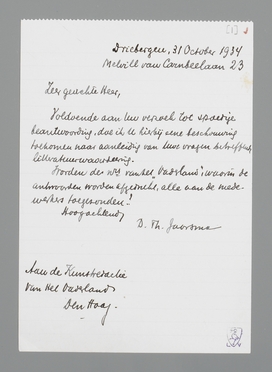 [1]
Driebergen, 31 October 1934
Melvill van Carnbeelaan 23
Zeer geachte Heer,
Voldoende aan Uw verzoek tot spoedige
beantwoording, doe ik U hierbij eene beschouwing
toekomen naar aanleiding van Uwe vragen betreffende
literatuurwaardeering.
Worden de nrs van het "Vaderland", waarin de
antwoorden worden afgedrukt, alle aan de mede-
werkers toegezonden?
Hoogachtend,
D. Th. Jaarsma
Aan de Kunstredactie
van Het Vaderland
Den Haag.